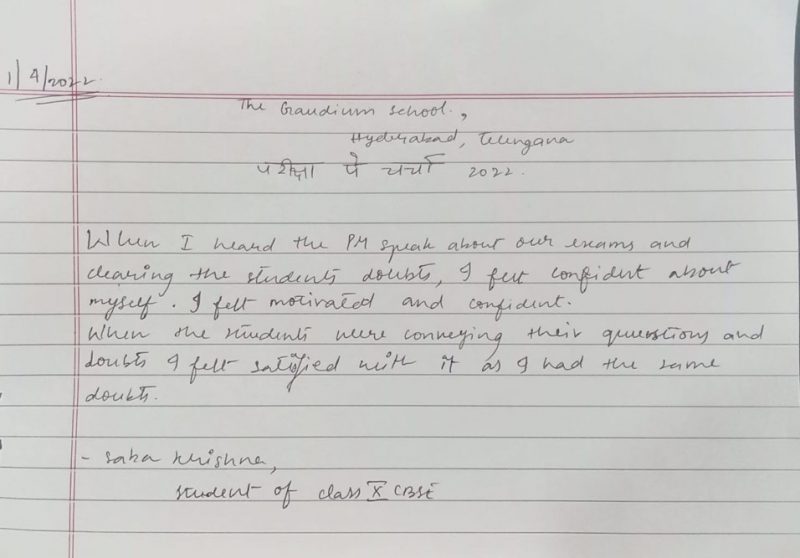 1/4/2022.
The Gaudium School.,
Hyderabad, Telengana
परीक्षा पे चर्चा 2022.
When I heard the PM speak about our exams and
clearing the students doubts, I felt confident about
myself. I felt motivated and confident.
When the students were conveying their questions and
doubts I felt satisfied with it as I had the same
doubts.
- Saka Krishna,
student of class X CBSE